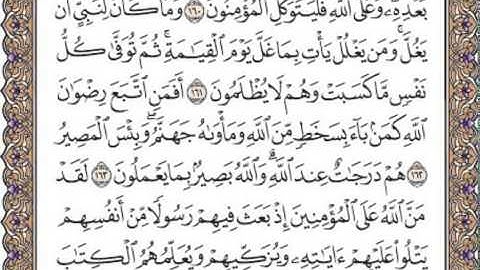 بَعۡدِهِۦۗ وَعَلَى ٱللَّهِ فَلۡيَتَوَكَّلِ ٱلۡمُؤۡمِنُونَ ١٦٠ وَمَا كَانَ لِنَبِيٍّ أَن
يَغُلَّۚ وَمَن يَغۡلُلۡ يَأۡتِ بِمَا غَلَّ يَوۡمَ ٱلۡقِيَٰمَةِۚ ثُمَّ تُوَفَّىٰ كُلُّ
نَفۡسٖ مَّا كَسَبَتۡ وَهُمۡ لَا يُظۡلَمُونَ ١٦١ أَفَمَنِ ٱتَّبَعَ رِضۡوَٰنَ
ٱللَّهِ كَمَنۢ بَآءَ بِسَخَطٖ مِّنَ ٱللَّهِ وَمَأۡوَىٰهُ جَهَنَّمُۖ وَبِئۡسَ ٱلۡمَصِيرُ
١٦٢ هُمۡ دَرَجَٰتٌ عِندَ ٱللَّهِۗ وَٱللَّهُ بَصِيرُۢ بِمَا يَعۡمَلُونَ ١٦٣ لَقَدۡ
مَنَّ ٱللَّهُ عَلَى ٱلۡمُؤۡمِنِينَ إِذۡ بَعَثَ فِيهِمۡ رَسُولٗا مِّنۡ أَنفُسِهِمۡ
يَتۡلُواْ عَلَيۡهِمۡ ءَايَٰتِهِۦ وَيُزَكِّيهِمۡ وَيُعَلِّمُهُمُ ٱلۡكِتَٰبَ